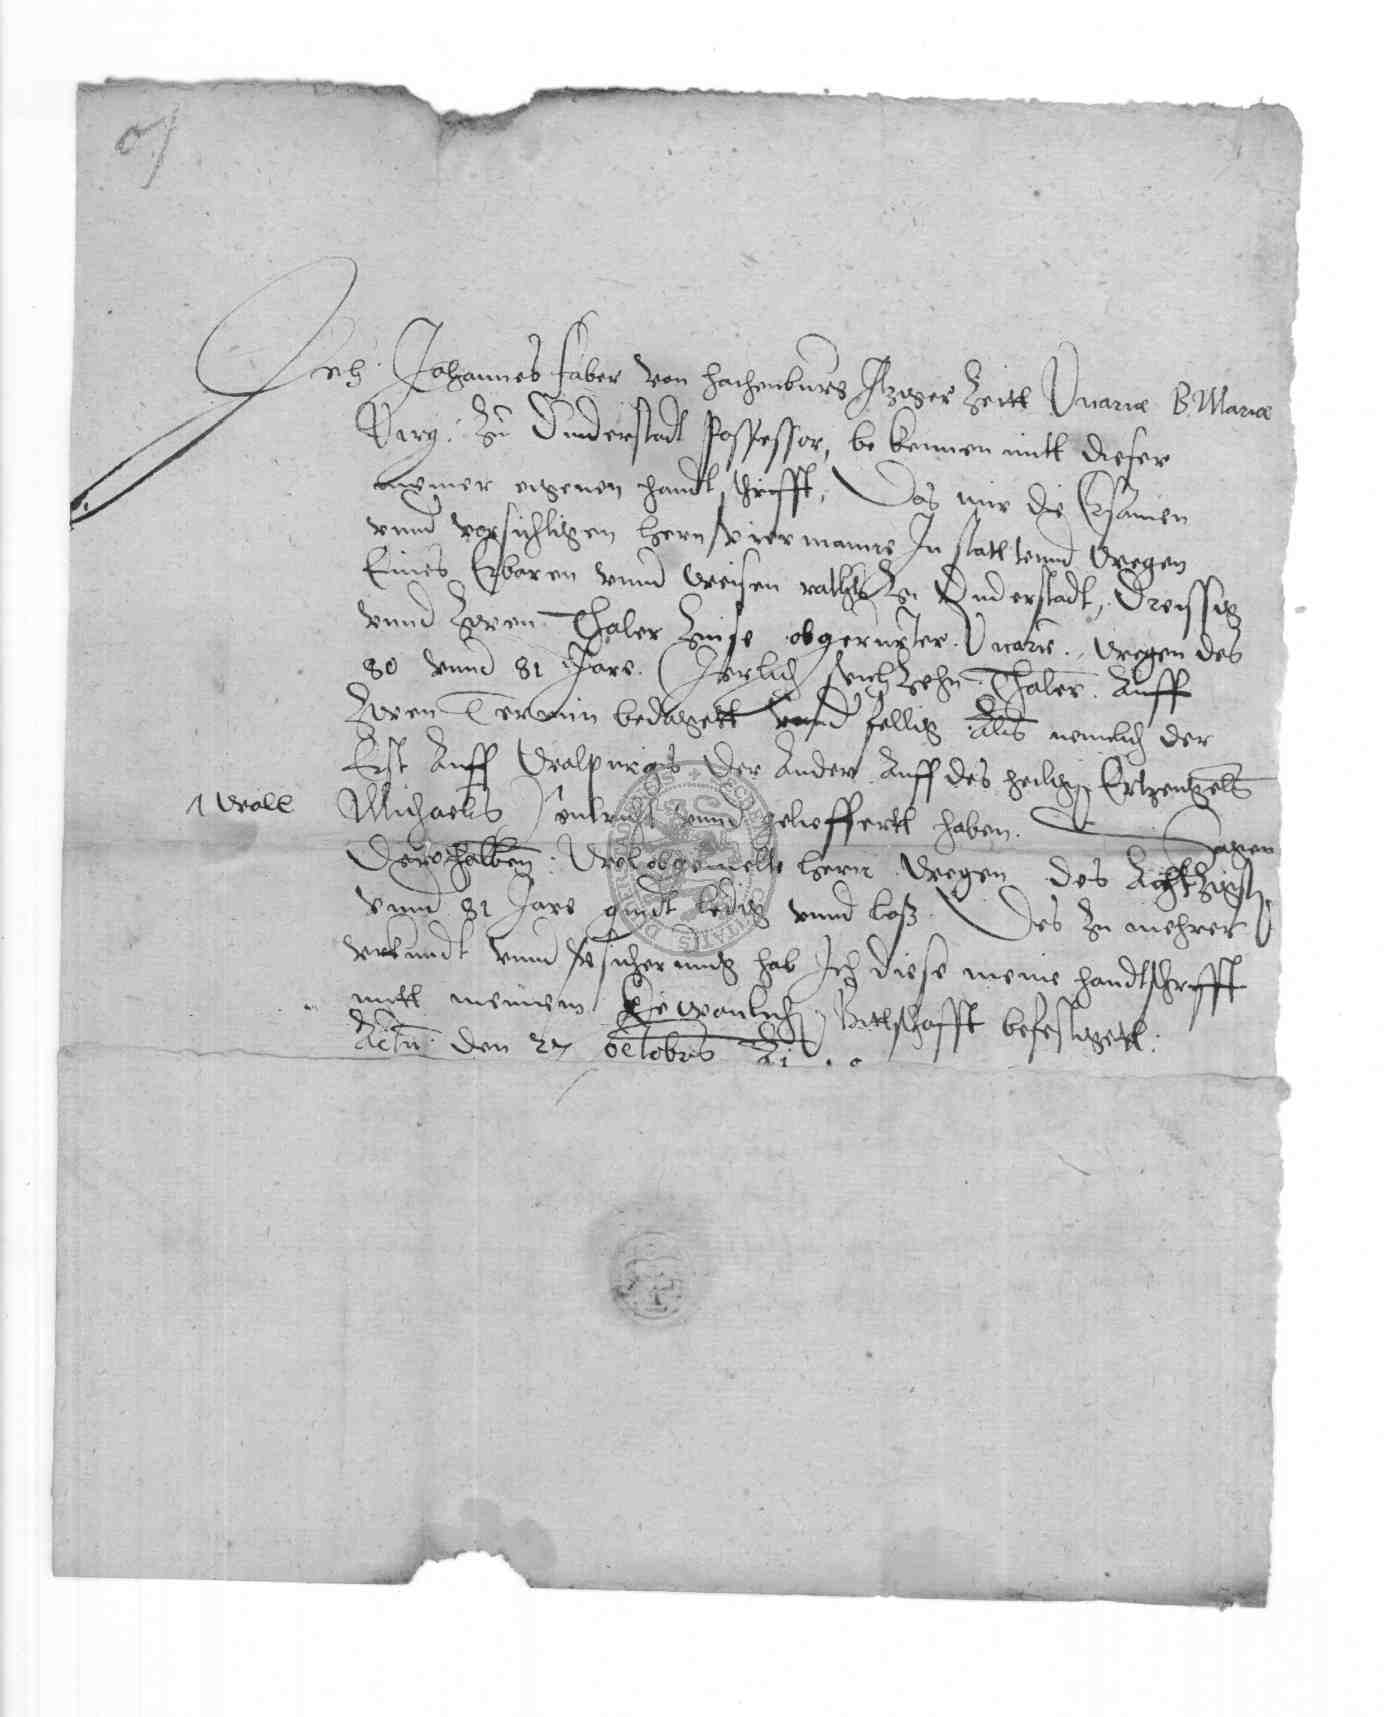 Ich Johannes Faber von Hachenburg Itziger Zeitt Vicariæ B Mariæ
Virg: Zu Duderstadt Possessor, bekennen mitt dieser
meiner eigenen handtschrifft, Das mir die Ersamen
vnnd vorsichtigen hern Viermanne In statt vnnd wegen
Eines Erbaren vnnd weisen raths Zu Duderstadt, Dreissig
vnnd Zwen Thaler Zinse obgerurter Vicarie, wegen des
80 vnnd 81 Jars. (Jerlich sechZehn Thaler. Auff
Zwen Termin bedagett vnnd fellig Als nemlich der
Erst Auff Walpurgis der Ander Auff des heilig Ertzengels
Michaelis) entricht vnnd gelieffertt haben.
woll
Sagen
Derohalben wolobgemelte hern wegen des AchtZigst
vnnd 81 Jars quidt ledig vnnd loß. Des Zu mehrer
vrkundt vnnd Versicherung hab Ich diese meine handtschrifft
mitt meinem Gewonlich Pittschafft befestigett.
Actū den 27 octobris Ai